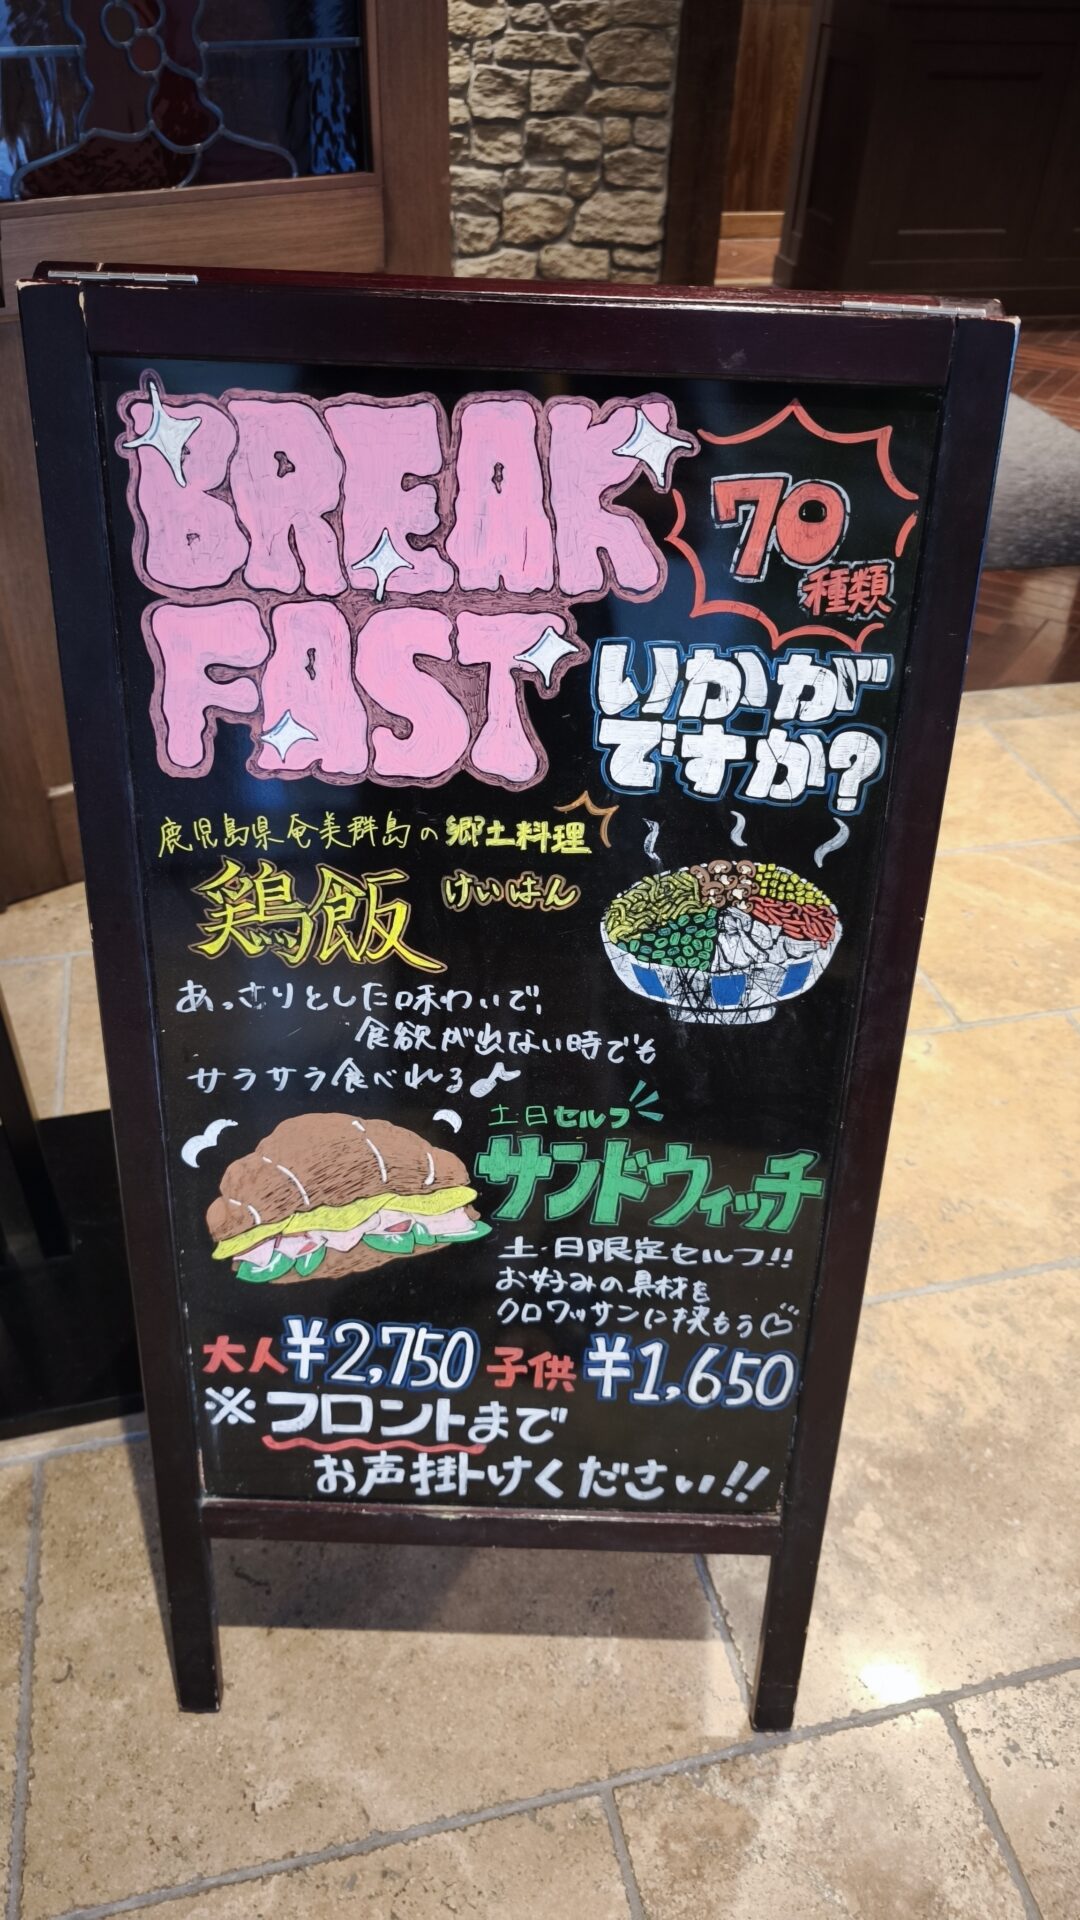 BREAK
FAST
70
種類
いかが
ですか?
鹿児島県奄美群島の郷土料理
鶏飯 けいはん
あっさりとした味わいで、
食欲が出ない時でも
サラサラ食べれる♪
土・日セルフ
サンドウィッチ
土・日限定セルフ!!
お好みの具材を
クロワッサンに挟もう♡
大人¥2,750 子供¥1,650
※フロントまで
お声掛けください!!